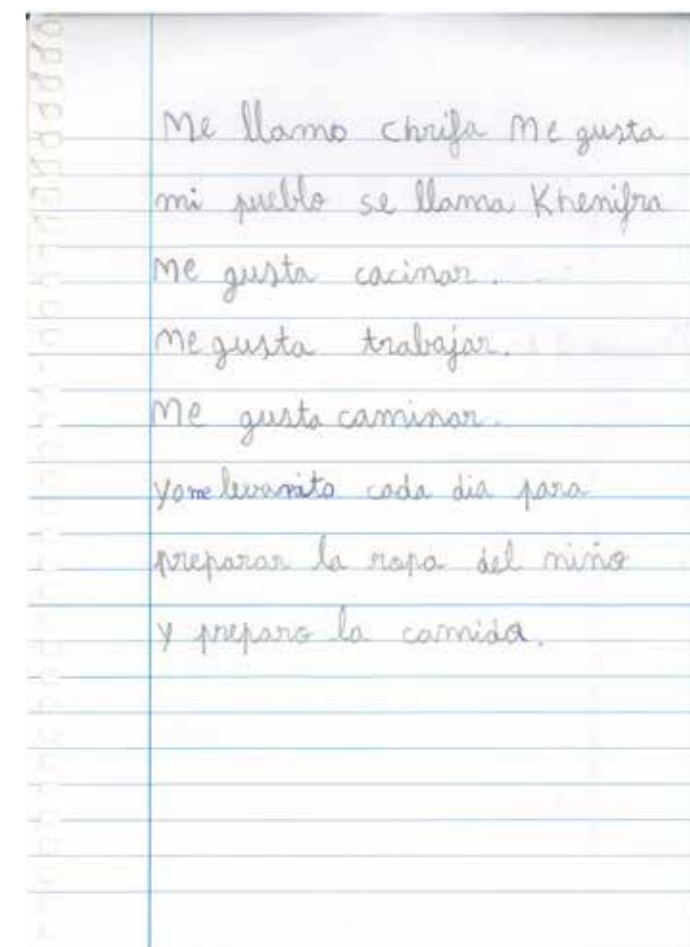 Me llamo chrifa Me gusta
mi pueblo se llama Khenifra
Me gusta cacinar.
Me gusta trabajar.
Me gusta caminar.
Yo me levanto cada dia para
preparar la ropa del niño
y preparo la camida.